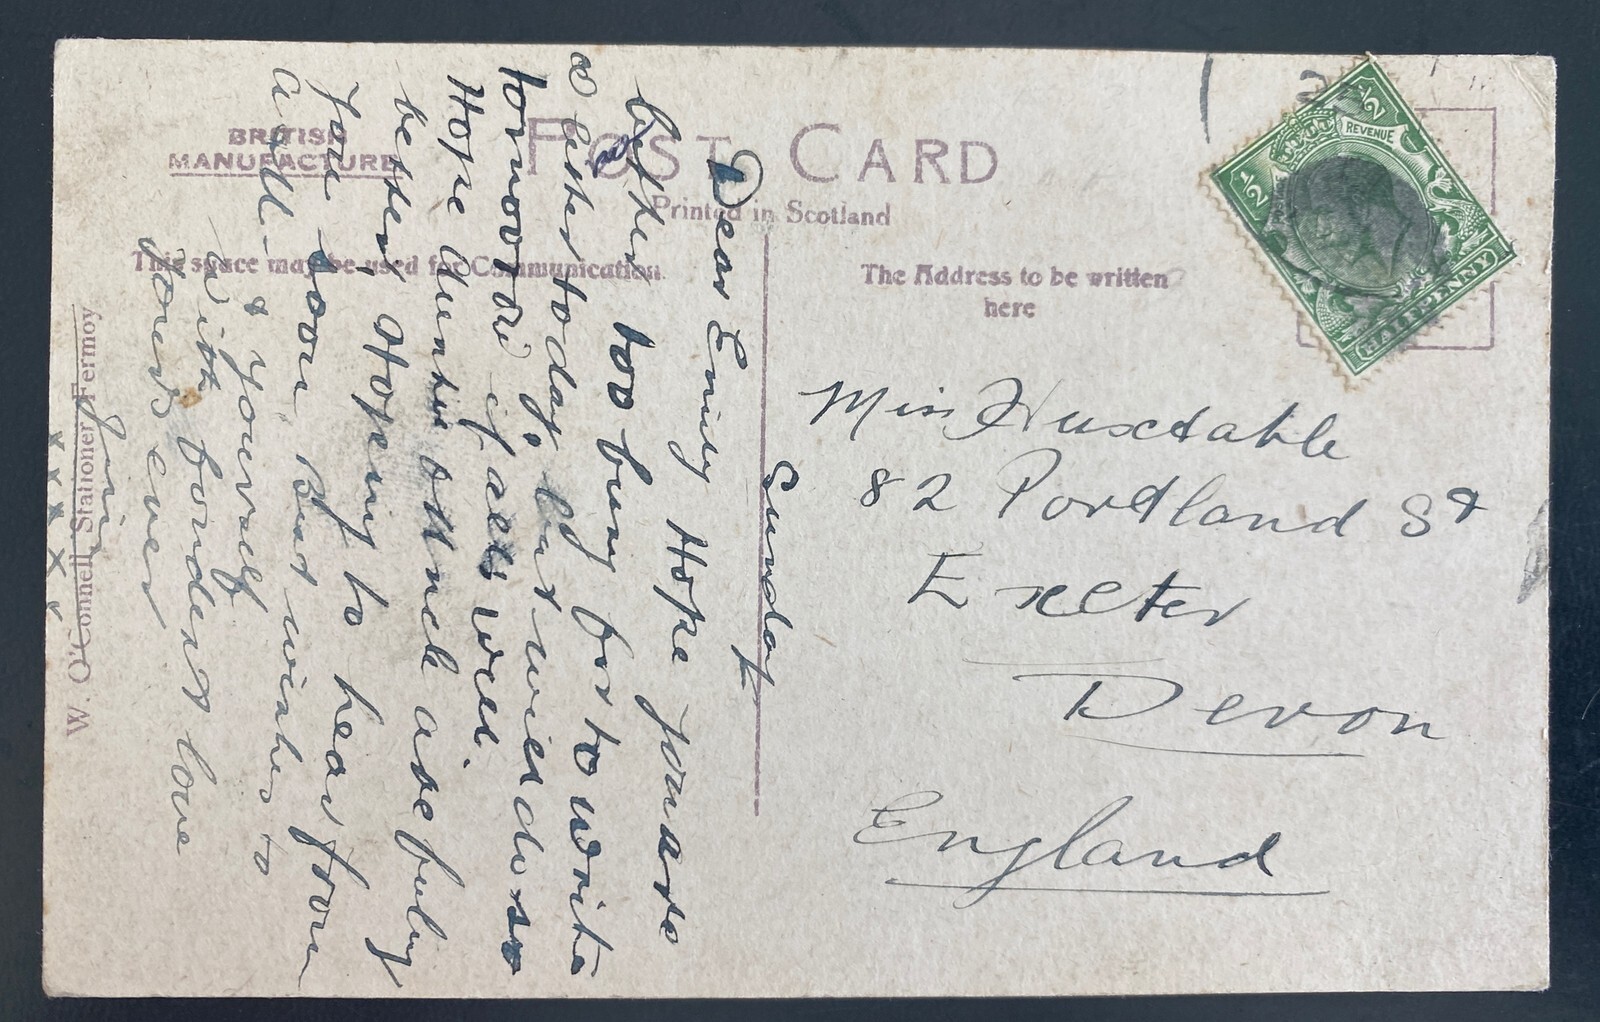 BRITISH
MANUFACTURE
POST CARD
Printed in Scotland
This space may be used for Communication.
The Address to be written
here
½ REVENUE ½
HALFPENNY
Sunday
Dear Emily Hope you are
better too busy for to write
a letter today, but will do so
tomorrow if all's well.
Hope Auntie &
better, Hoping to hear from
you soon Best wishes to
all & yourself
with fondest love
yours ever
x x x x x x
W. O'Connell, Stationer, Fermoy
Miss Huxtable
82 Portland St
Exeter
Devon
England